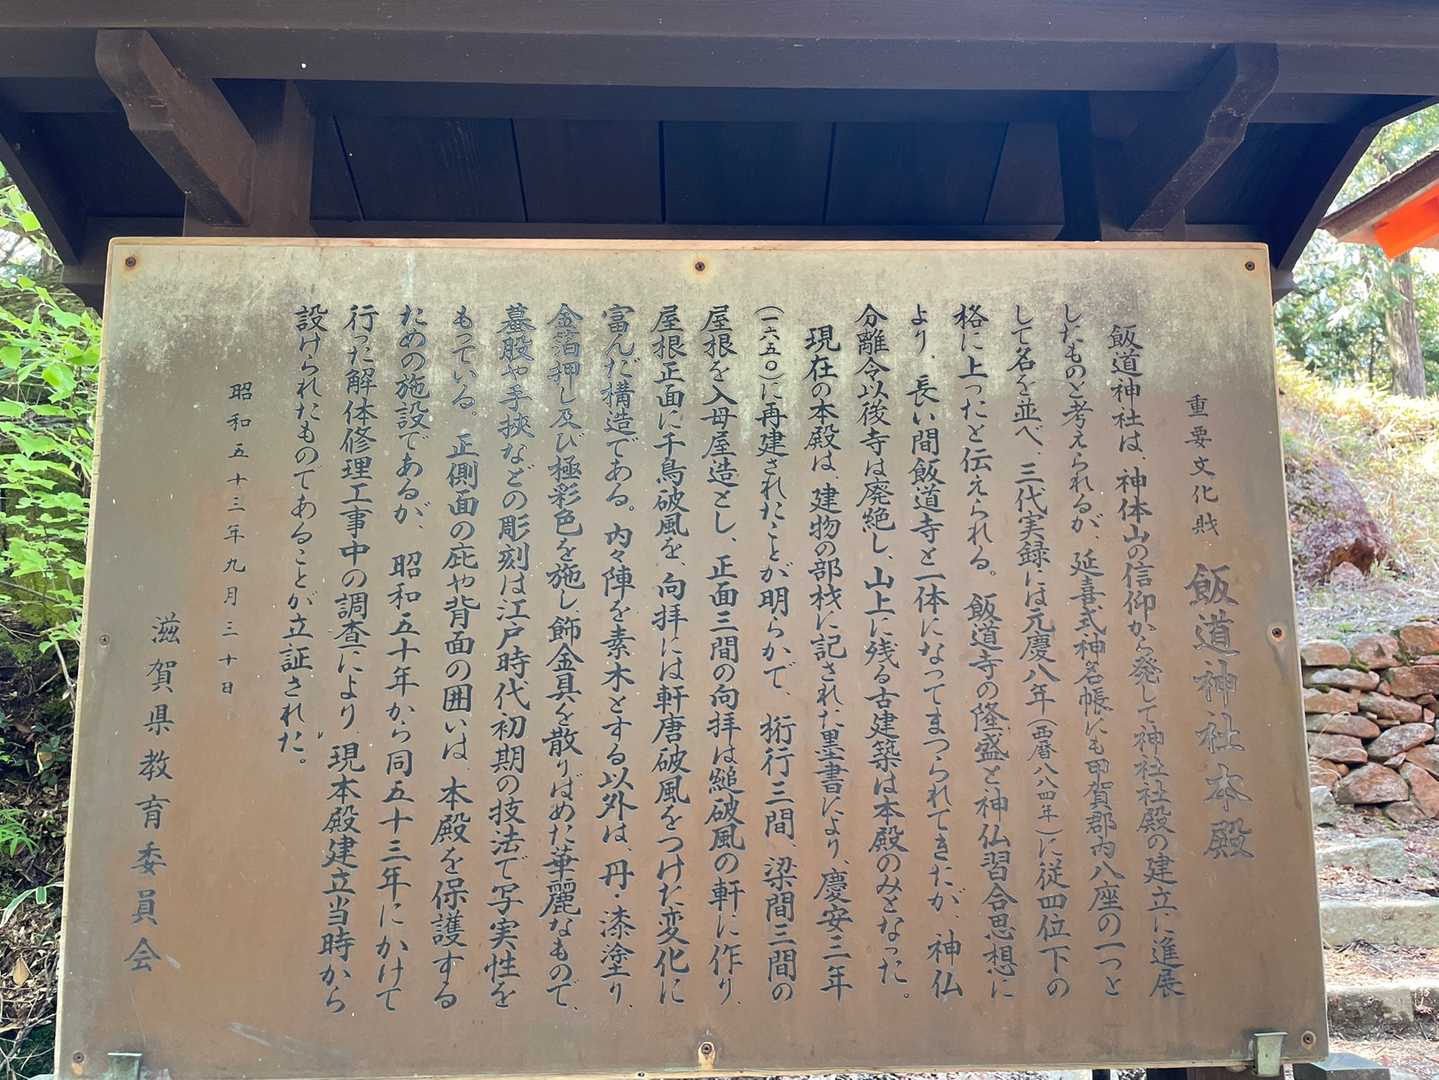 重要文化財 飯道神社本殿
飯道神社は、神体山の信仰から発して神社社殿の建立に進展
したものと考えられるが、延喜式神名帳にも甲賀郡内八座の一つと
して名を並べ、三代実録には元慶八年(西暦八八四年)に従四位下の
格に上ったと伝えられる。飯道寺の隆盛と神仏習合思想に
より、長い間飯道寺と一体になってまつられてきたが、神仏
分離令以後寺は廃絶し、山上に残る古建築は本殿のみとなった。
現在の本殿は、建物の部材に記された墨書により、慶安三年
(一六五〇)に再建されたことが明らかで、桁行三間、梁間三間の
屋根を入母屋造とし、正面三間の向拝は縋破風の軒に作り、
屋根正面に千鳥破風を、向拝には軒唐破風をつけた変化に
富んだ構造である。内々陣を素木とする以外は、丹・漆塗り、
金箔押し及び極彩色を施し、飾金具を散りばめた華麗なもので、
蟇股や手挾などの彫刻は江戸時代初期の技法で写実性を
もっている。正側面の庇や背面の囲いは、本殿を保護する
ための施設であるが、昭和五十年から同五十三年にかけて
行った解体修理工事中の調査により、現本殿建立当時から
設けられたものであることが立証された。
昭和五十三年九月三十日
滋賀県教育委員会